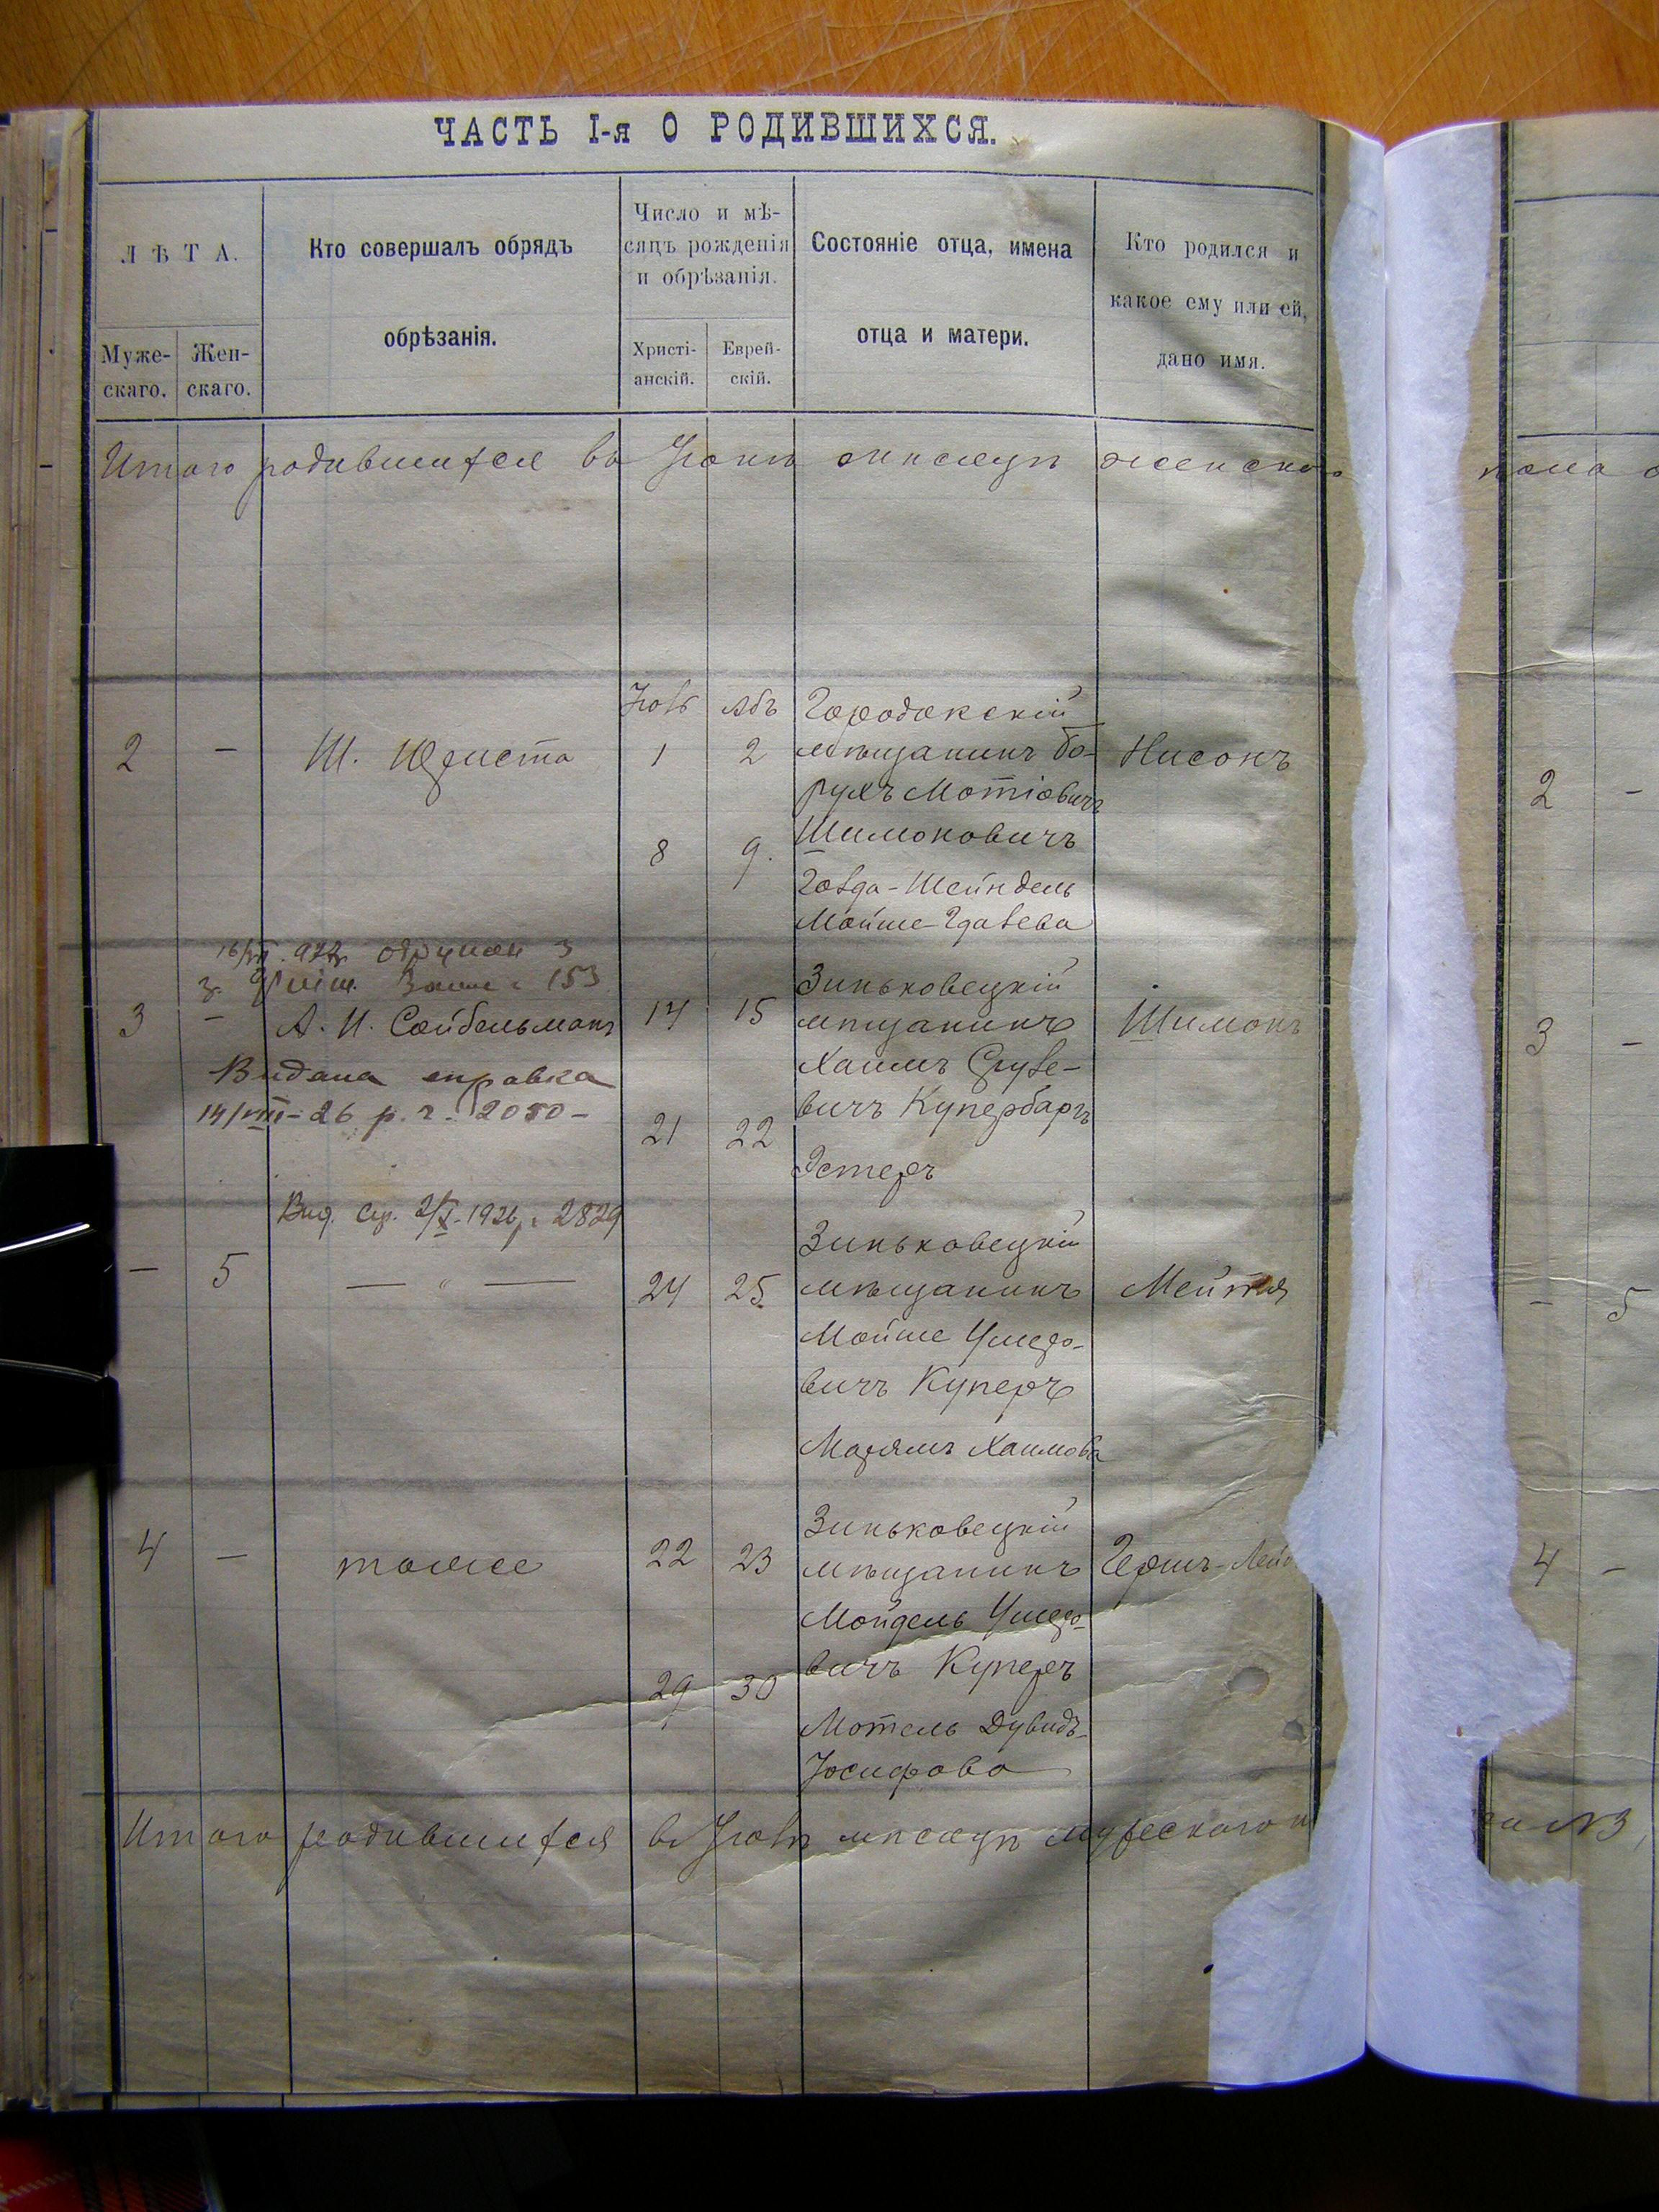 ЧАСТЬ I-я О РОДИВШИХСЯ.
ЛѢТА.
Муже-
скаго.
Жен-
скаго.
Кто совершалъ обрядъ
обрѣзанія.
Число и мѣ-
сяцъ рожденія
и обрѣзанія.
Христі-
анскій.
Еврей-
скій.
Состояніе отца, имена
отца и матери.
Кто родился и
какое ему или ей,
дано имя.
Итого родившихся въ мѣсяцѣ женского пола
2
-
Ш.
1
2
8
9.
Городокскій
мѣщанинъ Бо-
рухъ Мотіовичъ
Шимоновичъ
Шейндель
Мойше
Нисонъ
2
-
153
3
-
А. И. Сойбельманъ
Видана справка
14/VIII-26 р. г. 2050-
14
15
21
22
Зиньковецкій
мѣщанинъ
Хаимъ Сруле-
вичъ Купербаръ
Эстеръ
Шимонъ
3
-
Вид. спр. 2/X-1926 р. 2829
-
5
— " —
24
25
Зиньковецкій
мѣщанинъ
Мойше Ушеро-
вичъ Куперъ
Марямъ Хаимова
-
5
4
-
тоже
22
23
29
30
Зиньковецкій
мѣщанинъ
Мойдель Ушеро-
вичъ Куперъ
Мотель Дувидъ-
Іосифова
Гершъ-
4
-
Итого родившихся въ мѣсяцѣ мужескаго
3,